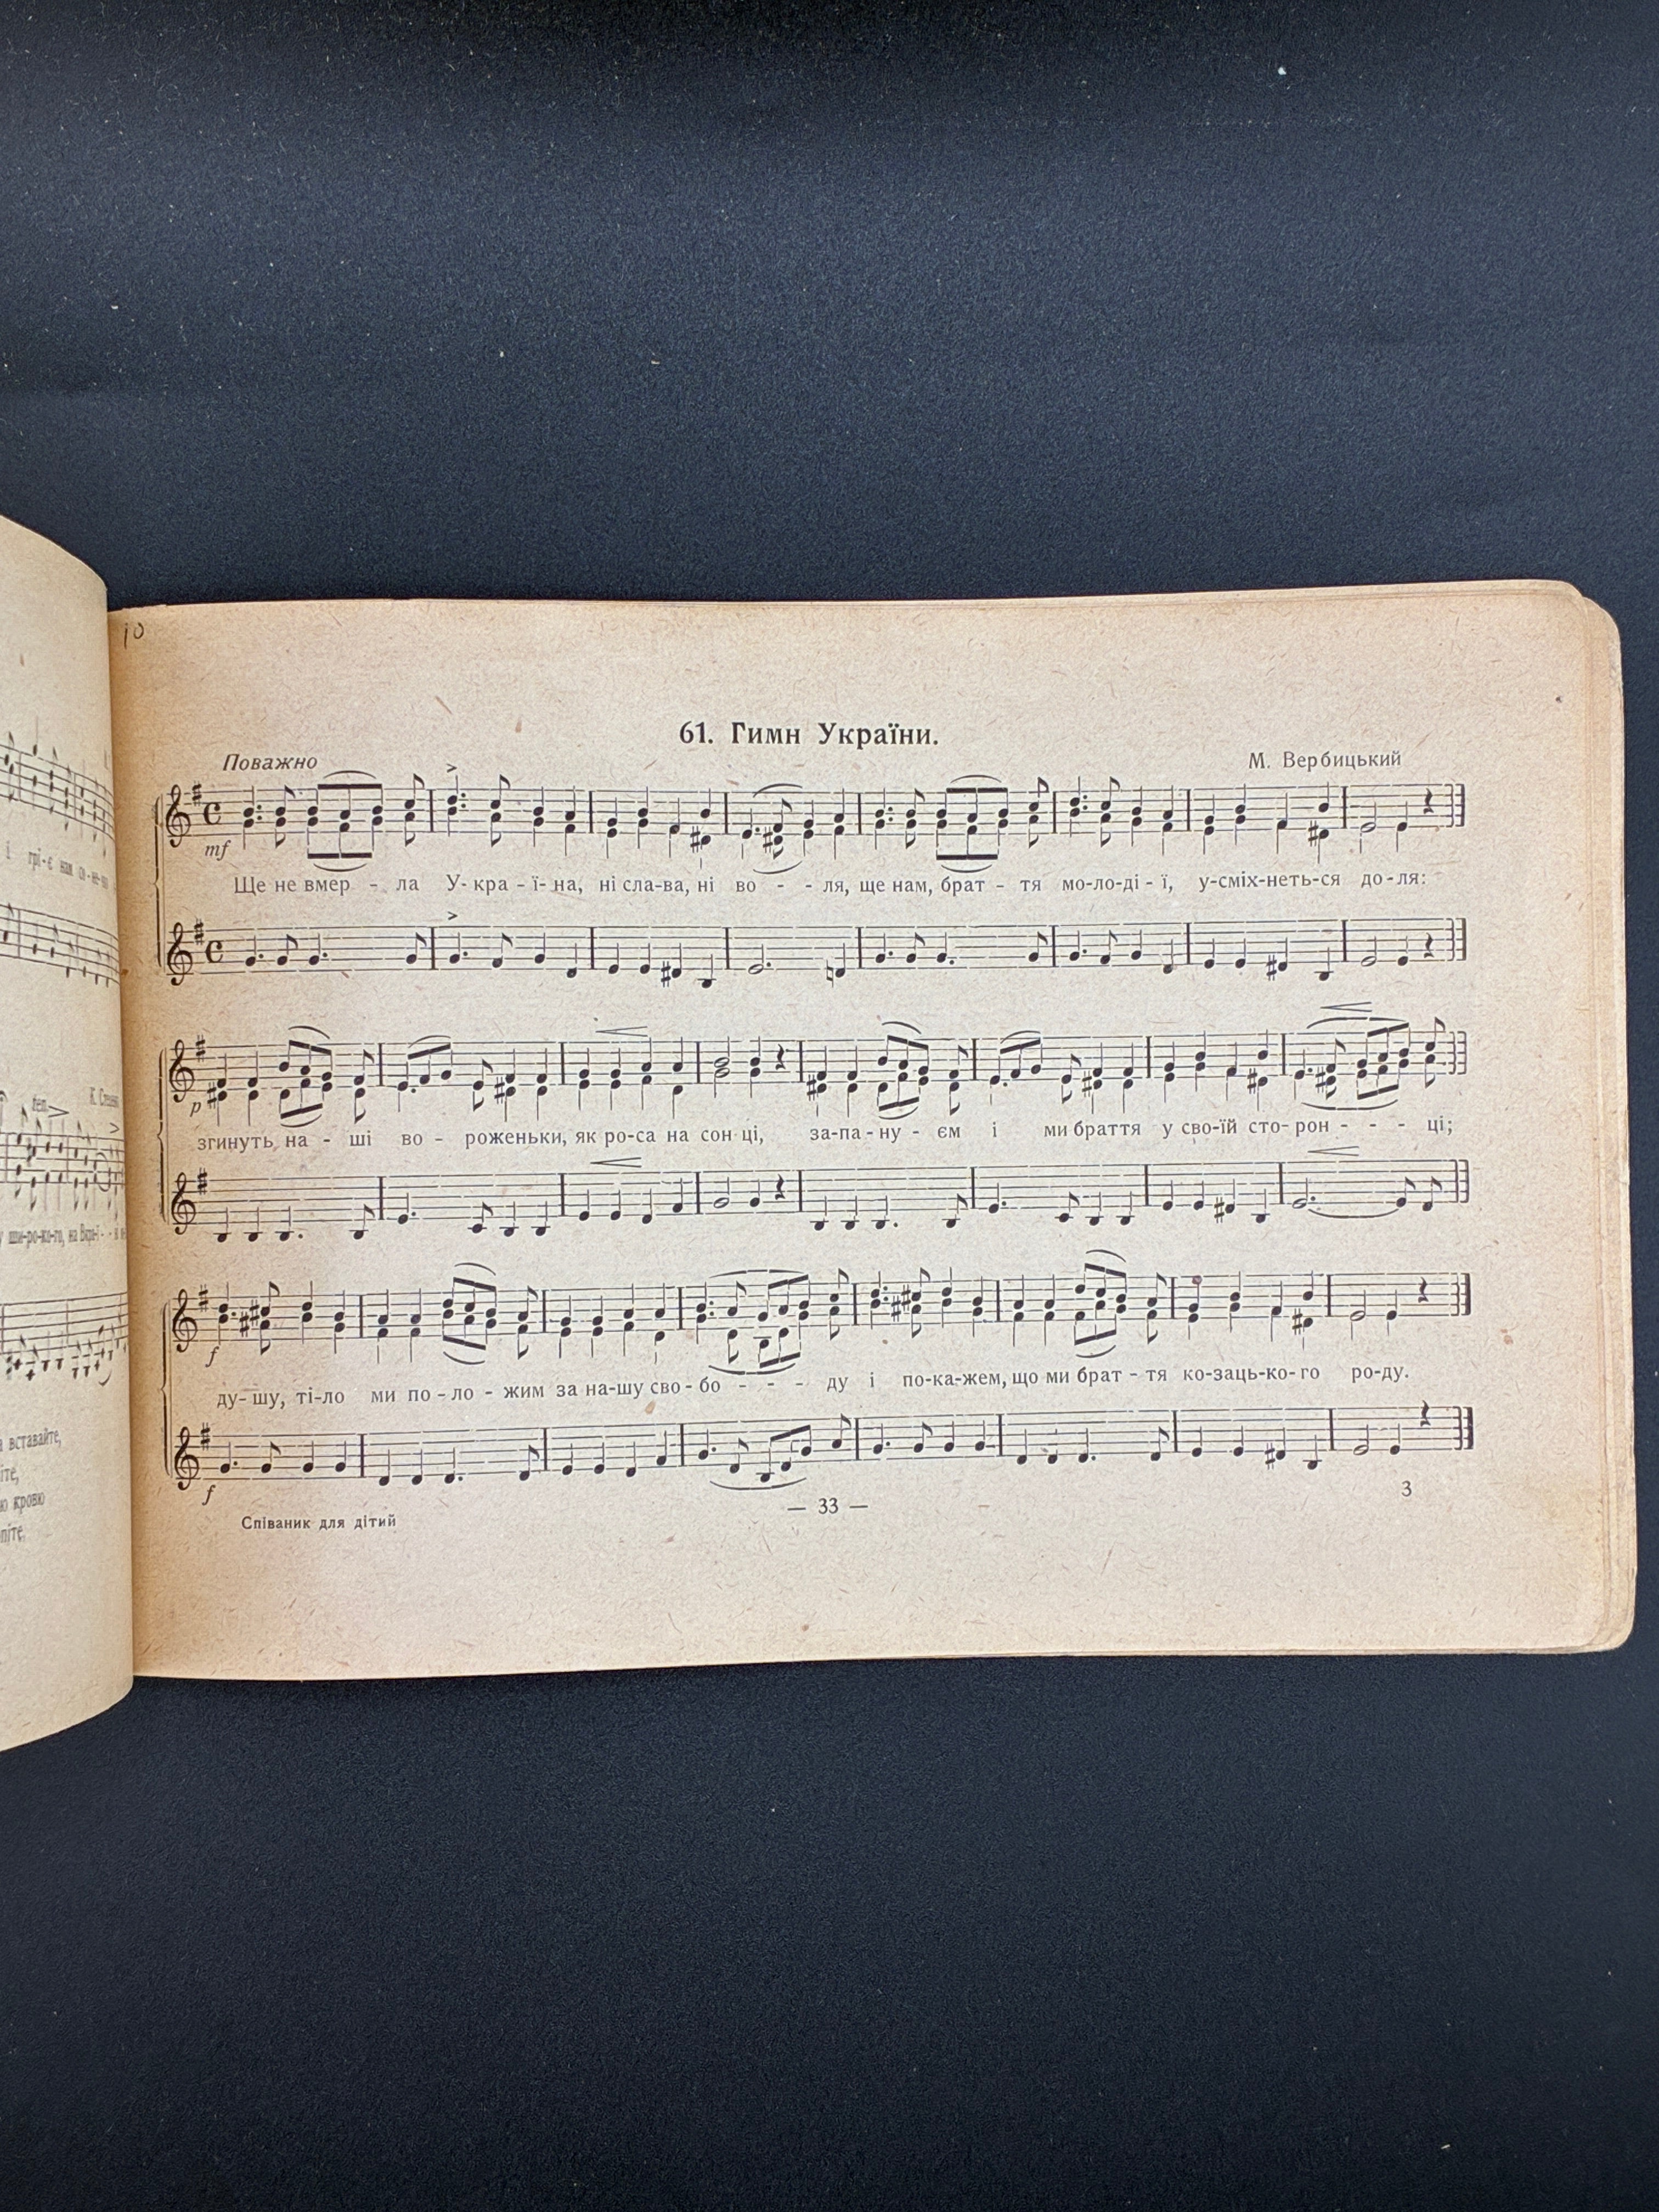 10
і грі-є нам
К. Стецен
ши-ро-ко-го, на Вкра-ї- -
вставайте,
кровю
61. Гимн України.
Поважно
М. Вербицький
mf
Ще не вмер - ла У-кра-ї-на, ні сла-ва, ні во - - ля, ще нам, брат - тя мо-ло-ді-ї, у-сміх-неть-ся до-ля:
p
згинуть на - ші во - роженьки, як ро-са на сон ці, за-па-ну-єм і ми браття у сво-їй сто-рон - - - ці;
f
ду-шу, ті-ло ми по-ло-жим за на-шу сво-бо - - - ду і по-ка-жем, що ми брат-тя ко-заць-ко-го ро-ду.
f
— 33 —
3
Співаник для дітий